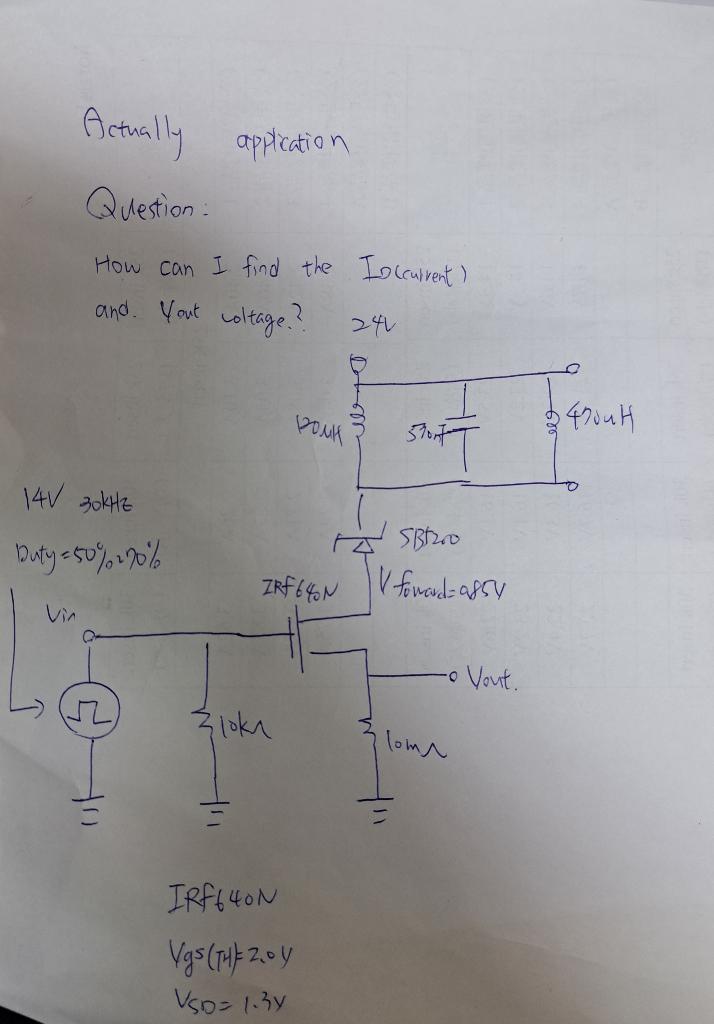 Actually application
Question:
How can I find the ID(current)
and. Vout voltage.?
24V
120uH
470uH
14V 30kHz
SB5200
IRF640N
V forward=0.85V
Vin
Vout.
10kΩ
10mΩ
IRF640N
Vgs(TH)=2.0V
VSD=1.3V